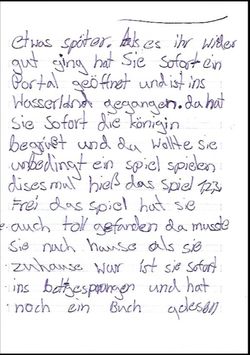 etwas später. Als es ihr wider
gut ging hat Sie sofort ein
Portal geöffnet und ist ins
Wasserland gegangen. da hat
Sie Sofort die königin
Begrüßt und da wollte sie
unbedingt ein spiel spielen
dises mal hieß das spiel 123
Frei das spiel hat sie
auch toll gefunden da musste
sie nach hause als sie
zuhause war ist sie sofort
ins bett gesprungen und hat
noch ein Buch gelesen